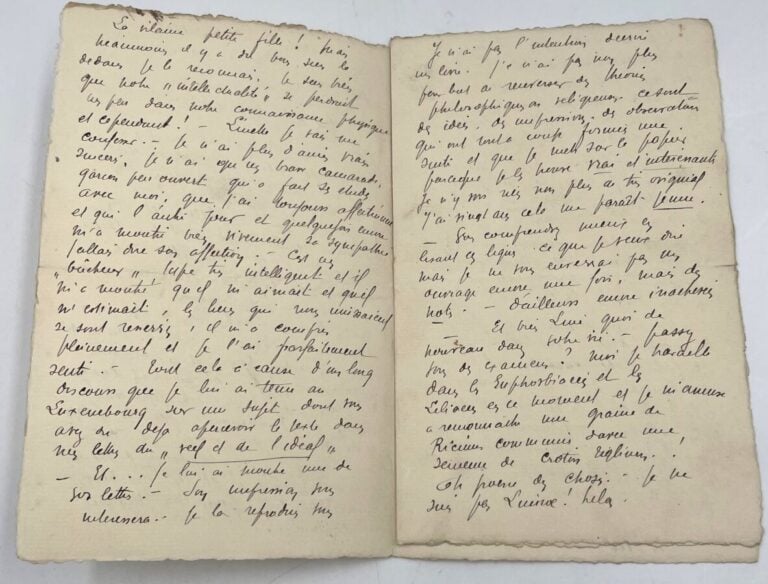 La vilaine petite fille ! Mais
néanmoins il y a du bon sens là
dedans je le reconnais. Je sens très
que notre "intellectualité" se perdrait
un peu dans notre connaissance physique
et cependant ! – Quelle je sais me
confesse. – Je n'ai plus d'amis vrais
sincères. Je n'ai qu'un brave camarade
garçon peu ouvert qui a fait ses études
avec moi, que j'ai toujours affectionné
et qui l'autre jour et quelquefois encore
m'a montré très vivement sa sympathie
j'allais dire son affection. – C'est un
"bûcheur" type très intelligent et il
m'a montré qu'il m'aimait et qu'il
m'estimait, les liens qui nous unissaient
se sont resserrés, il m'a compris
pleinement et je l'ai parfaitement
senti. – Tout cela à cause d'un long
discours que je lui ai tenu au
Luxembourg sur un sujet dont vous
avez dû déjà apercevoir le texte dans
mes lettres du "réel et de l'idéal"
– Et... je lui ai montré une de
vos lettres. – Son impression vous
intéressera. – Je la reproduis
Je n'ai pas l'intention d'écrire
un livre. Je n'ai pas non plus
pour but de renverser des théories
philosophiques ou religieuses ce sont
des idées, des impressions, des observations
qui ont tout à coup formé une
et que je mets sur le papier
parce que je les trouve vrai et intéressants
Je n'y vois rien non plus de très original
J'ai vingt ans cela me paraît jeune.
– Vous comprendrez mieux en
lisant ces lignes ce que je veux dire
mais je ne vous enverrai pas un
ouvrage encore une fois, mais des
notes – d'ailleurs encore inachevées
– Et très Quoi de
nouveau dans votre vie. – passez
vous des examens ? Moi je travaille
dans les Euphorbiacées et les
Liliacées en ce moment et je m'amuse
à reconnaître une graine de
Ricinus communis d'avec une
semence de Croton Tiglium.
Oh poésie des choses – Je ne
suis pas Linné ! hélas.